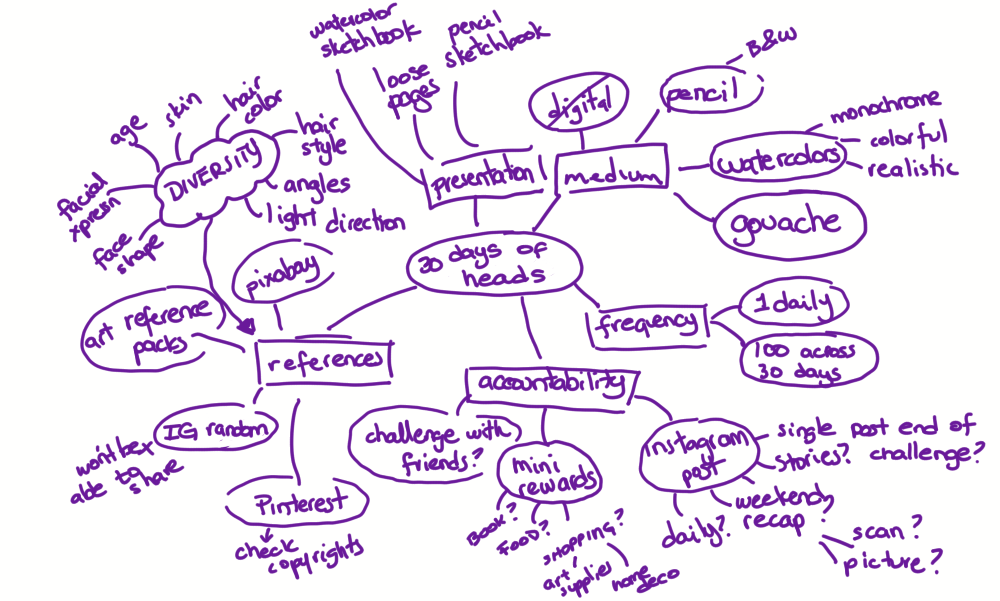 watercolor
sketchbook
pencil
sketchbook
loose
pages
B&W
digital
pencil
monochrome
colorful
realistic
watercolors
gouache
medium
presentation
age
skin
hair
color
hair
style
DIVERSITY
angles
light direction
facial
xpresn
face
shape
30 days of
heads
pixabay
art reference
packs
references
frequency
1 daily
100 across
30 days
accountability
IG random
won't bex
able to
share
Pinterest
check
copyrights
challenge with
friends?
mini
rewards
Book?
FOOD?
SHOPPING?
art
supplies
home
deco
instagram
post
single post end of
challenge?
stories?
weekend
recap?
daily?
scan?
picture?